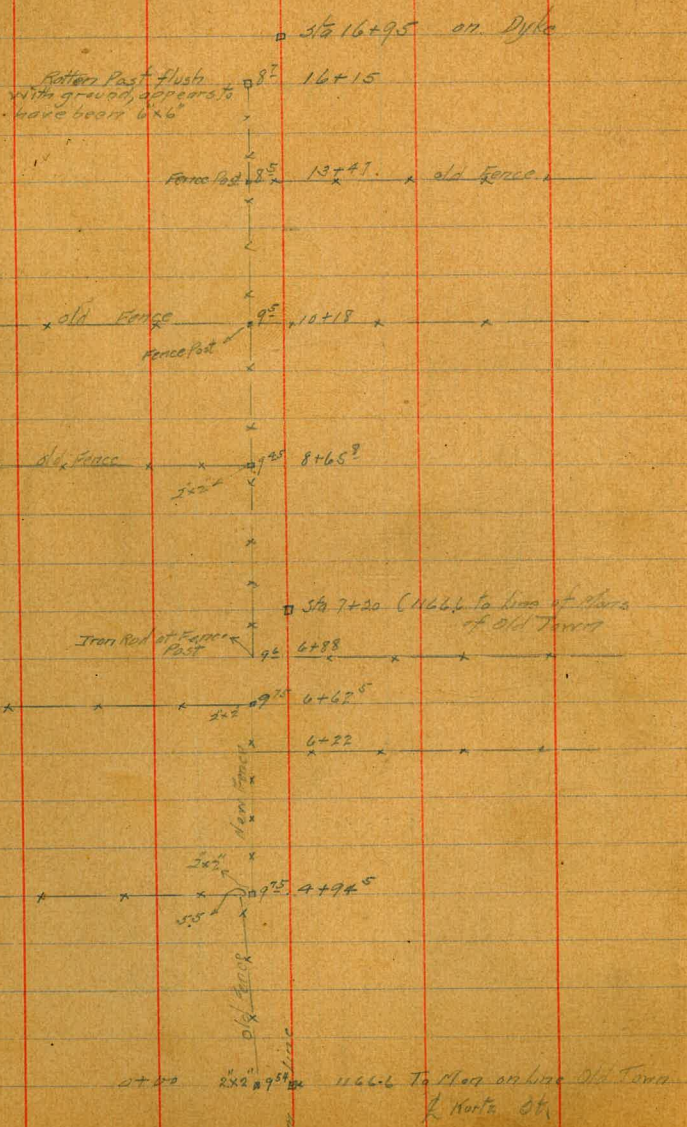 Sta 16+95 on Dyke
Rotten Post flush
with ground, appears to
have been 6"x6"
8⁷ 16+15
Fence Post 8⁵ 13+47. old Fence
old Fence 9⁵ 10+18
Fence Post
old Fence 9⁴⁵ 8+65⁸
2"x2"
Sta 7+20 (1166.6 to Line of
of Old Town
Iron Rod at Fence
Post
9⁶ 6+88
2x2 9⁷⁵ 6+62⁵
6+22
New Fence
2"x2"
9⁷⁵ 4+94⁵
5.5
Old Fence
Line
0+00 2"x2" 9⁵⁴ 1166.6 To Mon on Line Old Town
& OK